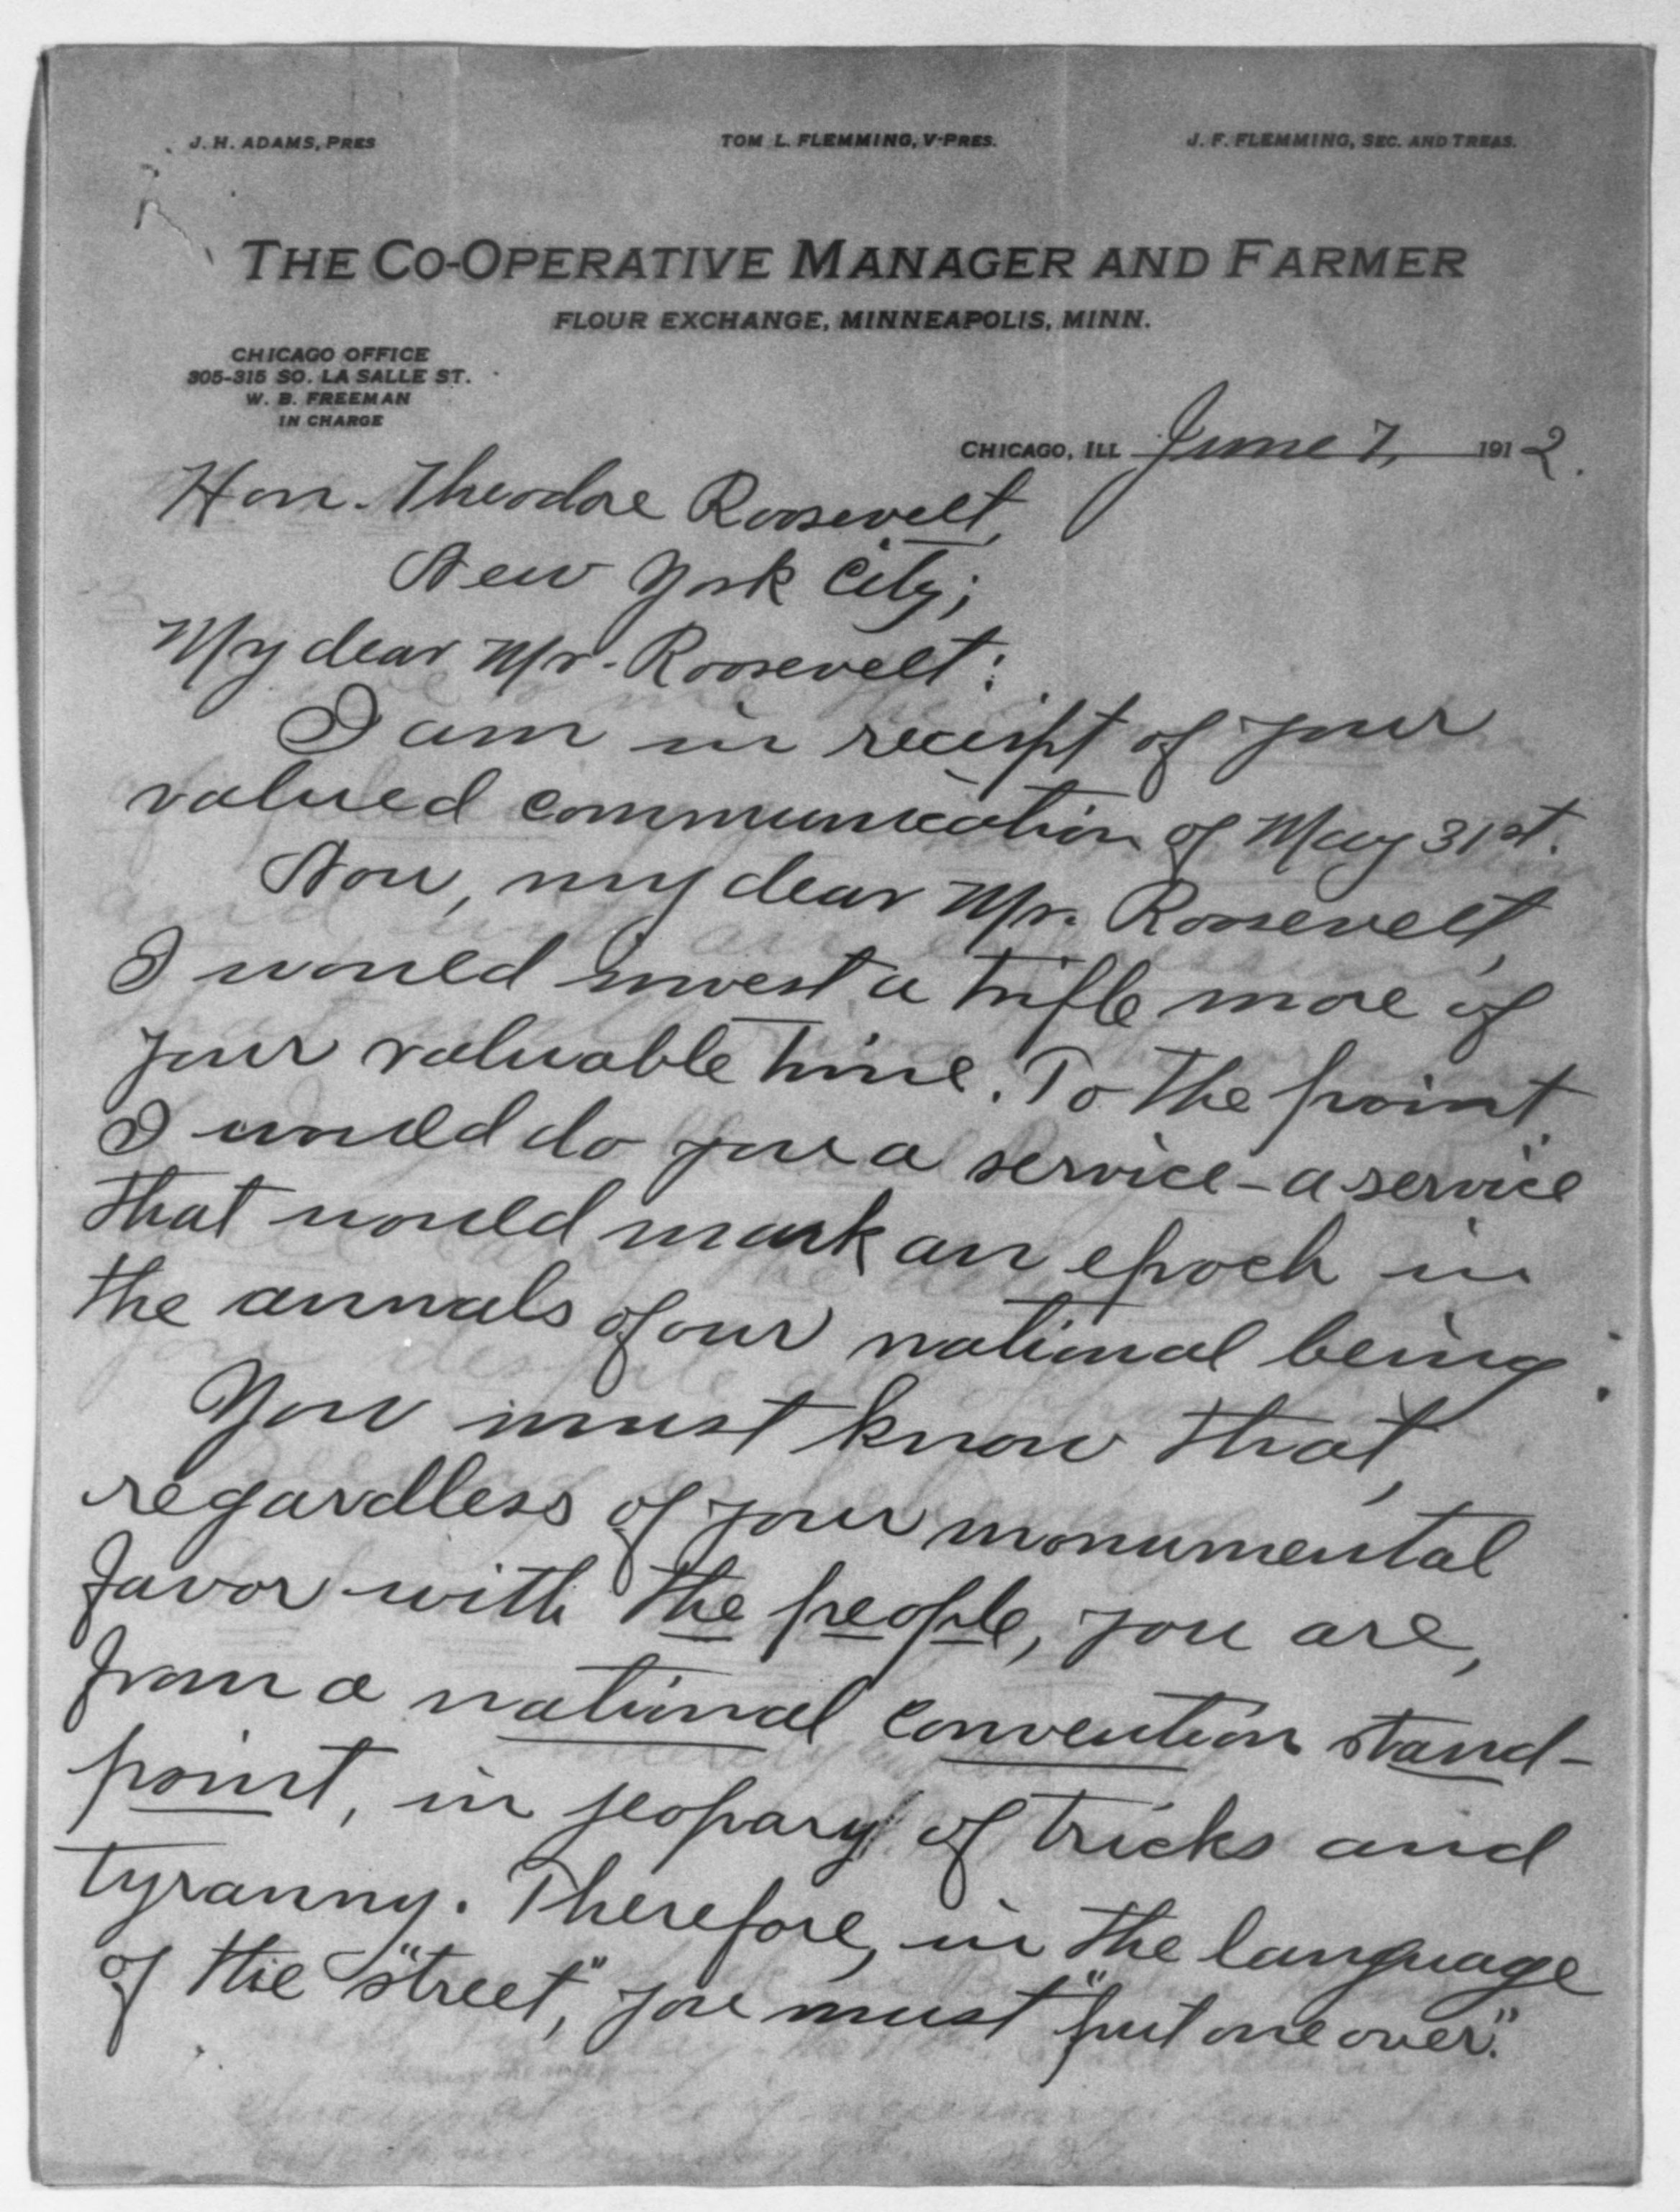 J. H. ADAMS, PRES
TOM L. FLEMMING, V-PRES.
J. F. FLEMMING, SEC. AND TREAS.
THE CO-OPERATIVE MANAGER AND FARMER
FLOUR EXCHANGE, MINNEAPOLIS, MINN.
CHICAGO OFFICE
305-315 SO. LA SALLE ST.
W. B. FREEMAN
IN CHARGE
CHICAGO, ILL June 7, 1912.
Hon. Theodore Roosevelt,
New York City;
My dear Mr. Roosevelt:
I am in receipt of your
valued communication of May 31st.
Now, my dear Mr. Roosevelt,
I would invest a trifle more of
your valuable time. To the point,
I would do you a service - a service
that would mark an epoch in
the annals of our national being.
You must know that,
regardless of your monumental
favor with the people, you are,
from a national convention stand-
point, in jeopary of tricks and
tyranny. Therefore, in the language
of the "street", you must "put one over".